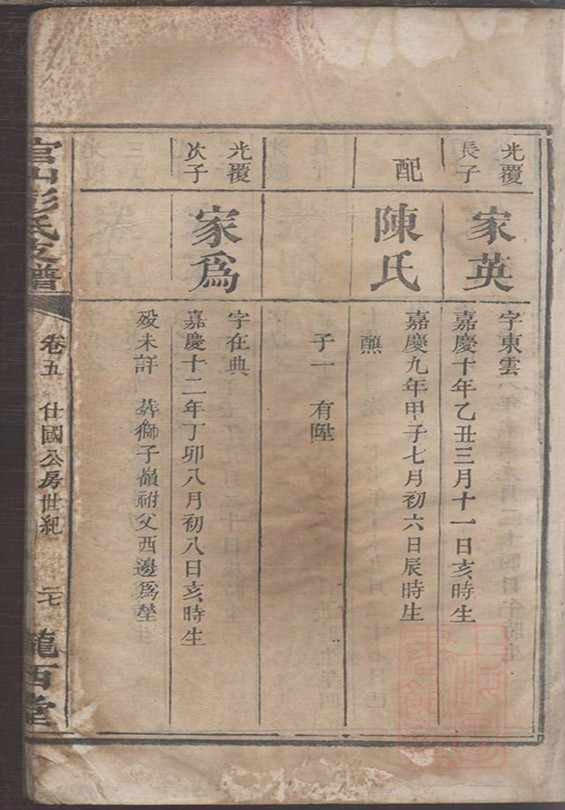 光覆
長子
家英
字東雲
嘉慶十年乙丑三月十一日亥時生
配
陳氏
嘉慶九年甲子七月初六日辰時生
醮
子一 有陞
光覆
次子
家爲
字在典
嘉慶十二年丁卯八月初八日亥時生
歿未詳 葬獅子嶺祔父西邊爲塋
官山彭氏支譜
卷五 仕國公房世紀
二七
隴西堂